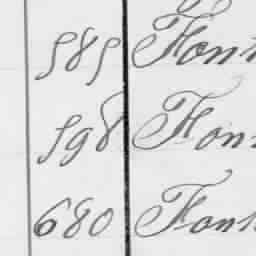 585 Font
598 Font
680 Font